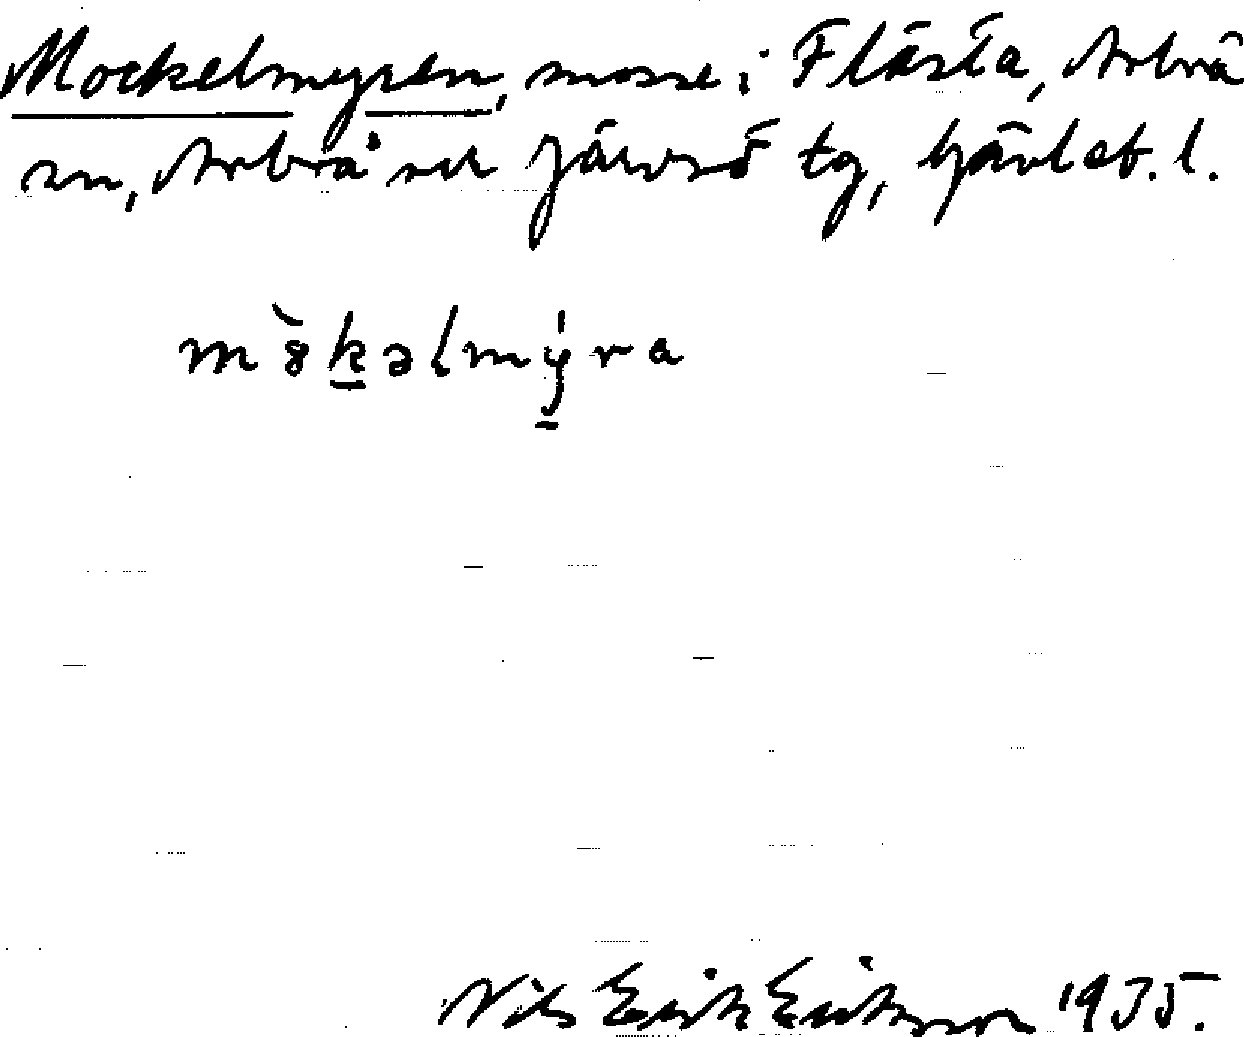 Mockelmyren, mosse i Flästa, Arbrå
sn, Arbrå och Järvsö tg, Gävleb. l.
m8̀kəlmýra
Nils Erik Eriksson 1935.